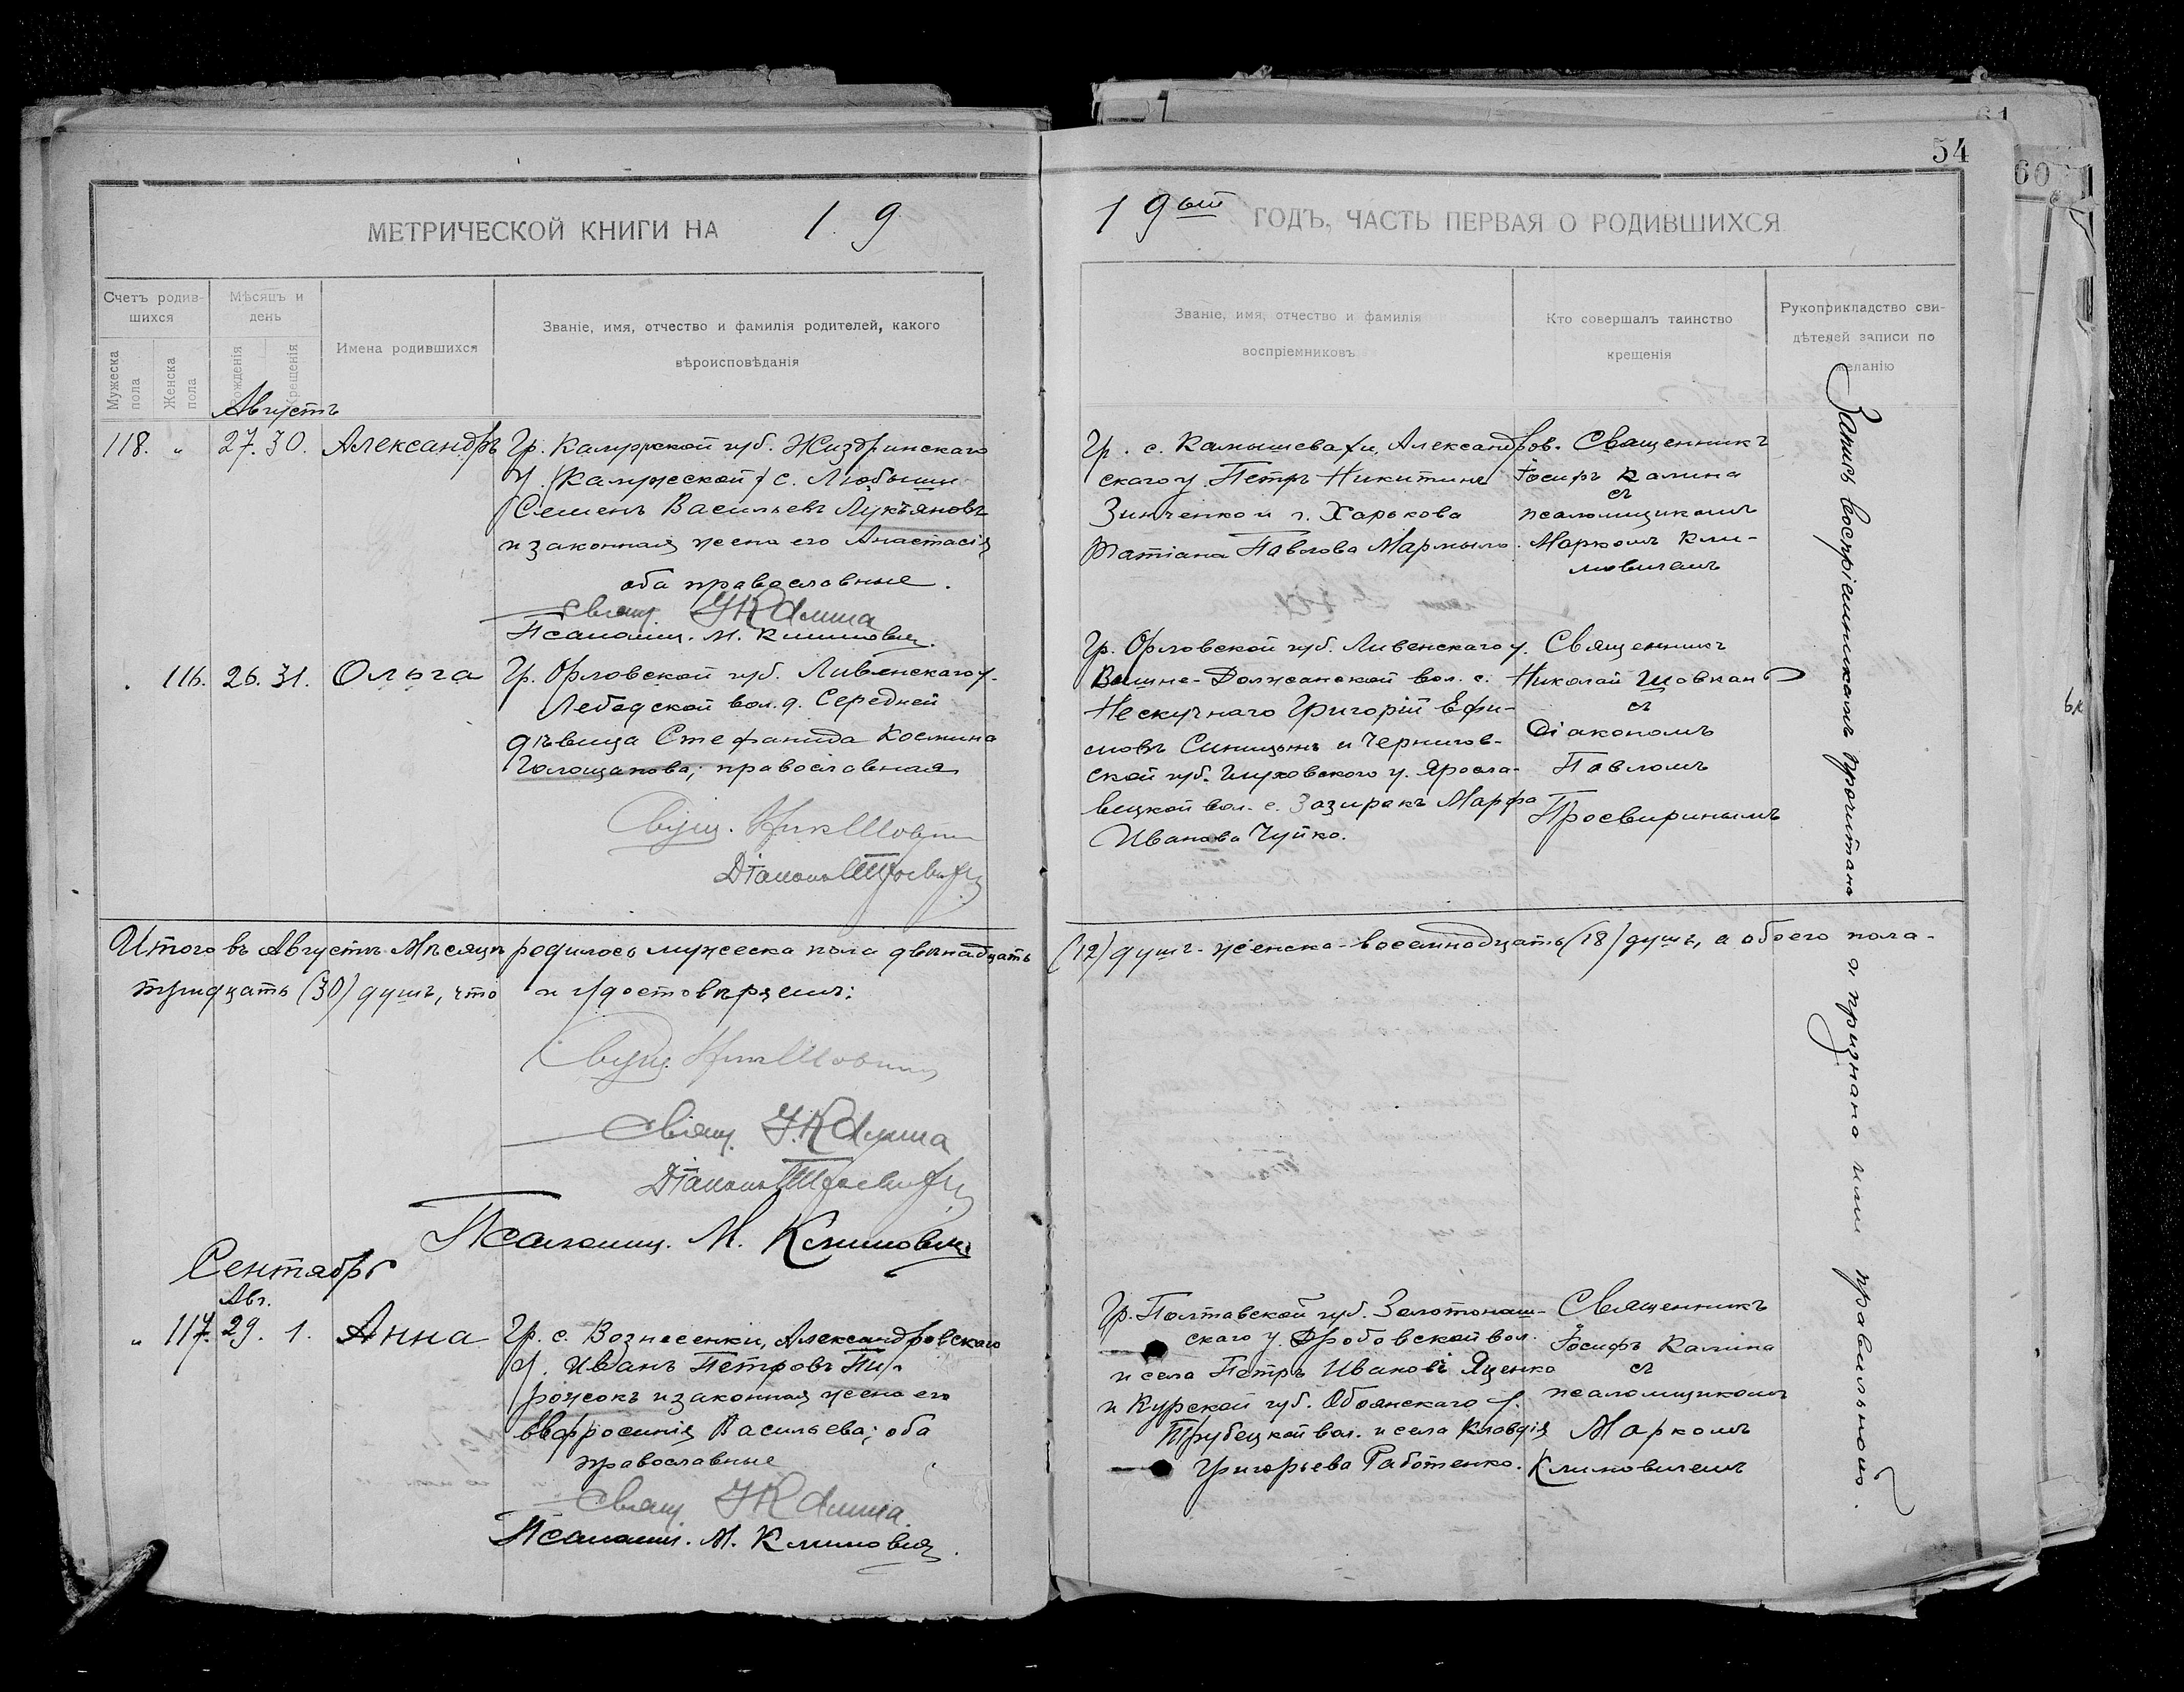 54
61
60
МЕТРИЧЕСКОЙ КНИГИ НА 1 9
Счетъ родив-
шихся
Мѣсяцъ и
день
Имена родившихся
Званіе, имя, отчество и фамилія родителей, какого
вѣроисповѣданія
Мужеска
пола
Женска
пола
Рожденія
Крещенія
Августъ
118. „ 27. 30. Александръ
Гр. Калужской губ. Жиздринскаго
у. (Калужской) с. Любыши
Семенъ Васильевъ Лукьяновъ
и законная жена его Анастасія
оба православные.
Свящ. І Калина
Псаломщ. М. Климович.
116. 26. 31. Ольга
Гр. Орловской губ. Ливенскаго у.
Лебадской вол. д. Середней
дѣвица Стефанида Космина
Голощапова; православная
Свящ. Ник Шовкун
Діаконъ П Просвирин
Итого въ Августѣ Мѣсяцѣ родилось мужеска пола двѣнадцать
(12) душъ - женска - восемнадцать (18) душъ, а обоего пола -
тридцать (30) душъ, что и удостовѣряемъ:
Свящ. Ник Шовкун
Свящ. І. Калина
Діаконъ П Просвирин
Псаломщ. М. Климович
Сентябрь
Авг.
„ 117. 29. 1. Анна
Гр. с. Вознесенки, Александровскаго
у. Иванъ Петровъ Пи-
рожокъ и законная жена его
Евфросинія Васильева; оба
православные
Свящ. І Калина.
Псаломщ. М. Климович.
1 9 ый ГОДЪ, ЧАСТЬ ПЕРВАЯ О РОДИВШИХСЯ
Званіе, имя, отчество и фамилія
воспріемниковъ
Кто совершалъ таинство
крещенія
Рукоприкладство сви-
дѣтелей записи по
желанію
Гр. с. Камышевахи, Александров-
скаго у Петръ Никитинъ
Зинченко и г. Харькова
Татіана Павлова Мармыло.
Священникъ
Іосифъ Калина
съ
псаломщикомъ
Маркомъ Кли-
мовичемъ
Гр. Орловской губ. Ливенскаго у.
Вышне-Должанской вол. с.
Нескучнаго Григорій Ефи-
мовъ Синицынъ и Чернигов-
ской губ. Глуховского у. Яросла-
вецкой вол. с. Зазиракъ Марфа
Иванова Чуйко.
Священникъ
Николай Шовкан
съ
Діакономъ
Павломъ
Просвиринымъ
Гр. Полтавской губ. Золотонош-
скаго у. Дробовской вол.
и села Петръ Ивановъ Яценко
и Курской губ. Обоянскаго у.
Трубецкой вол. и села Клавдія
Григорьева Работенко.
Священникъ
Іосифъ Калина
съ
псаломщикомъ
Маркомъ
Климовичемъ
Запись воспріемникамъ прочитана и признана ими правильною.